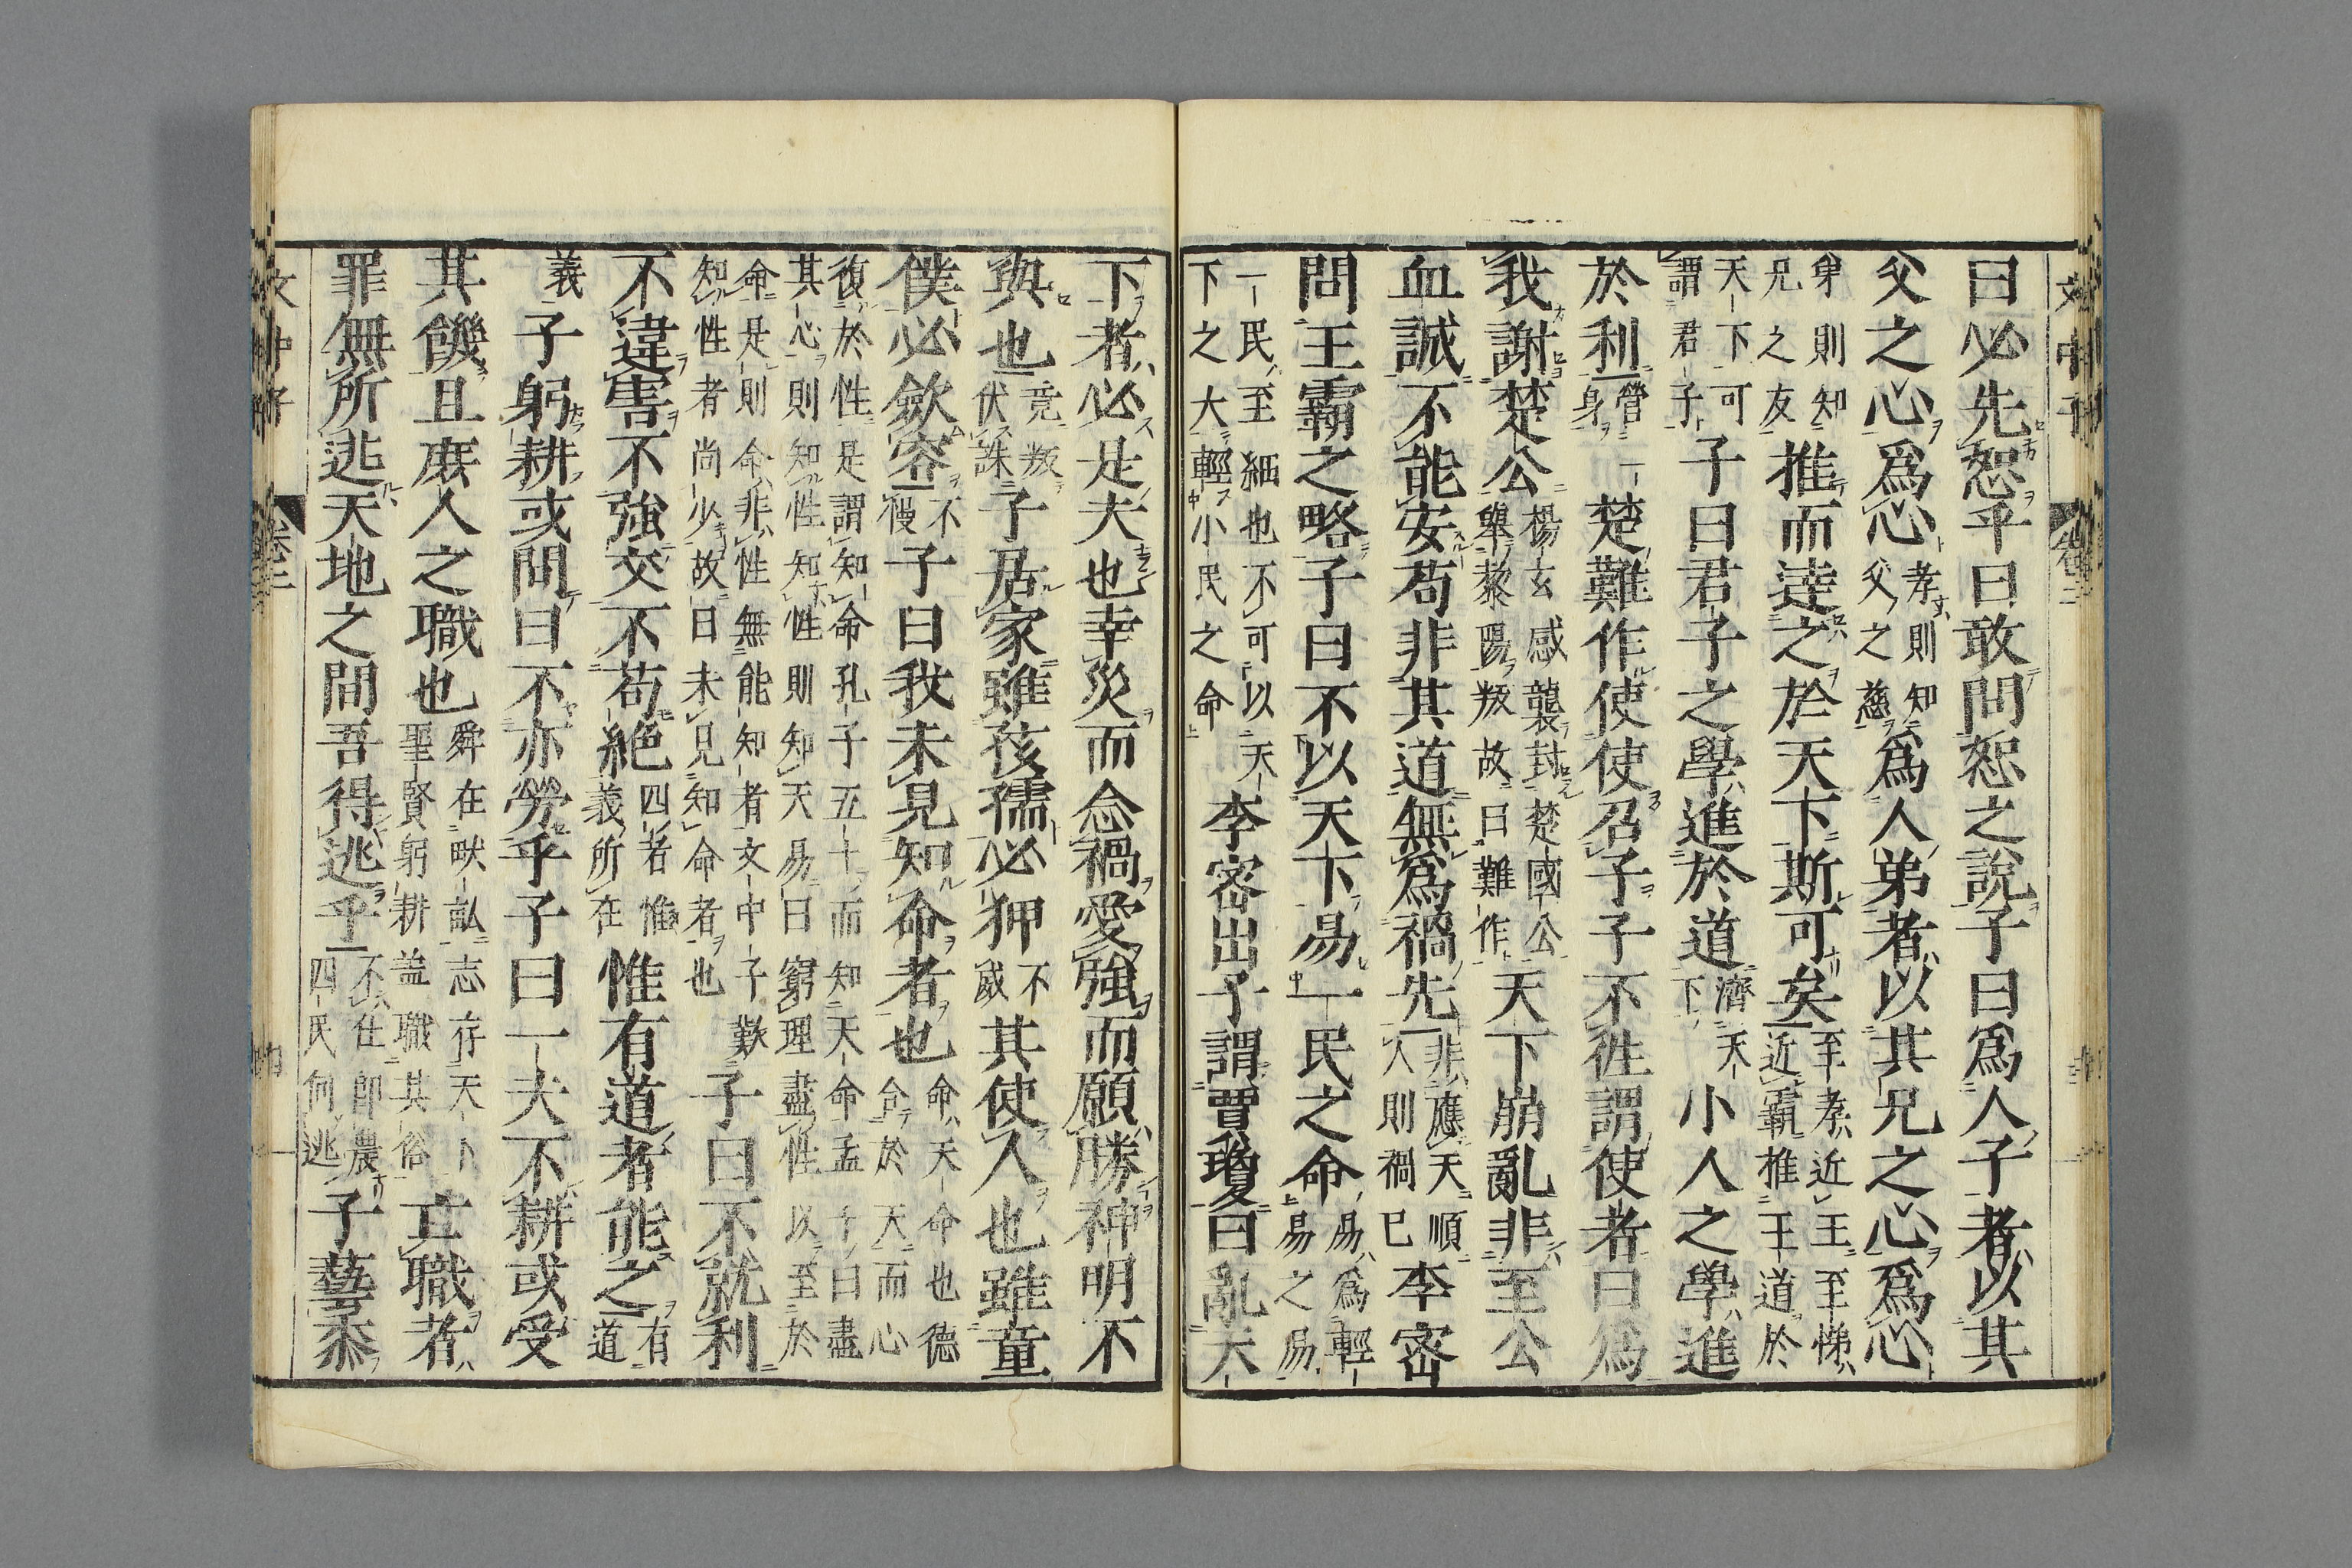 曰必先恕乎曰敢問恕之說子曰爲人子者以其
父之心爲心孝則知父之慈爲人弟者以其兄之心爲心
弟則知兄之友推而達之於天下斯可矣至孝近王至悌近霸推王道於
天下可謂君子子曰君子之學進於道濟天下小人之學進
於利營身楚難作使使召子子不往謂使者曰爲
我謝楚公楊玄感襲封楚國公舉黎陽叛故曰難作天下崩亂非至公
血誠不能安苟非其道無爲禍先非應天順人則禍已李密
問王霸之略子曰不以天下易一民之命易爲輕易之易
一民至細也不可以天下之大輕小民之命李密出子謂賈瓊曰亂天
下者必是夫也幸災而念禍愛強而願勝神明不
與也竟叛伏誅子居家雖孩孺必狎不戲其使人也雖童
僕必斂容不慢子曰我未見知命者也命天命也德合於天而心
復於性是謂知命孔子五十而知天命孟子曰盡其心則知性知性則知天易曰窮理盡性以至於
命是則命非性無能知者文中子歎知性者尚少故曰未見知命者也子曰不就利
不違害不強交不苟絕四者惟義所在惟有道者能之有道
義子躬耕或問曰不亦勞乎子曰一夫不耕或受
其饑且庶人之職也舜在畎畝志存天下聖賢躬耕蓋職其俗亡職者
罪無所逃天地之間吾得逃乎不仕卽農四民何逃子藝黍
文中子
卷二